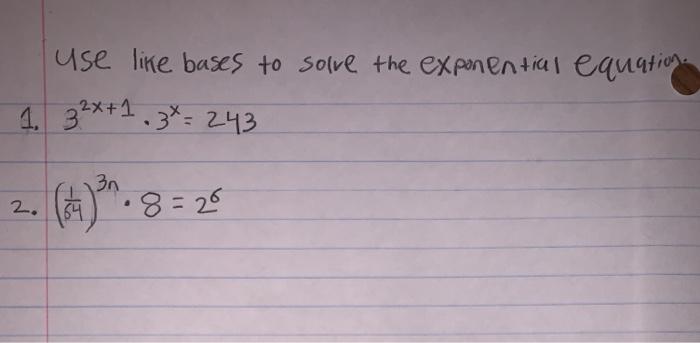 use like bases to solve the exponential equation.
1. 3^{2x+1} · 3^x = 243
2. (1/64)^{3n} · 8 = 2^6